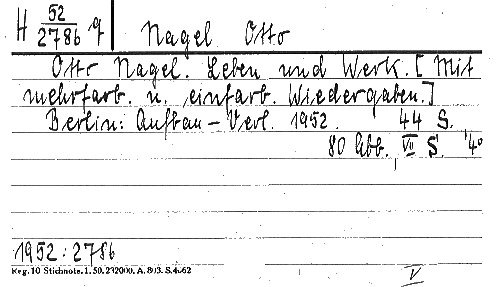 H 52/2786 q Nagel Otto
Otto Nagel. Leben und Werk. [Mit
mehrfarb. u. einfarb. Wiedergaben.]
Berlin: Aufbau-Verl. 1952. 44 S.
80 Abb. VII S. 4°
1952:2786
Krg. 10 Stichnote. 1. 50. 232000. A. 803. S. 4062
V